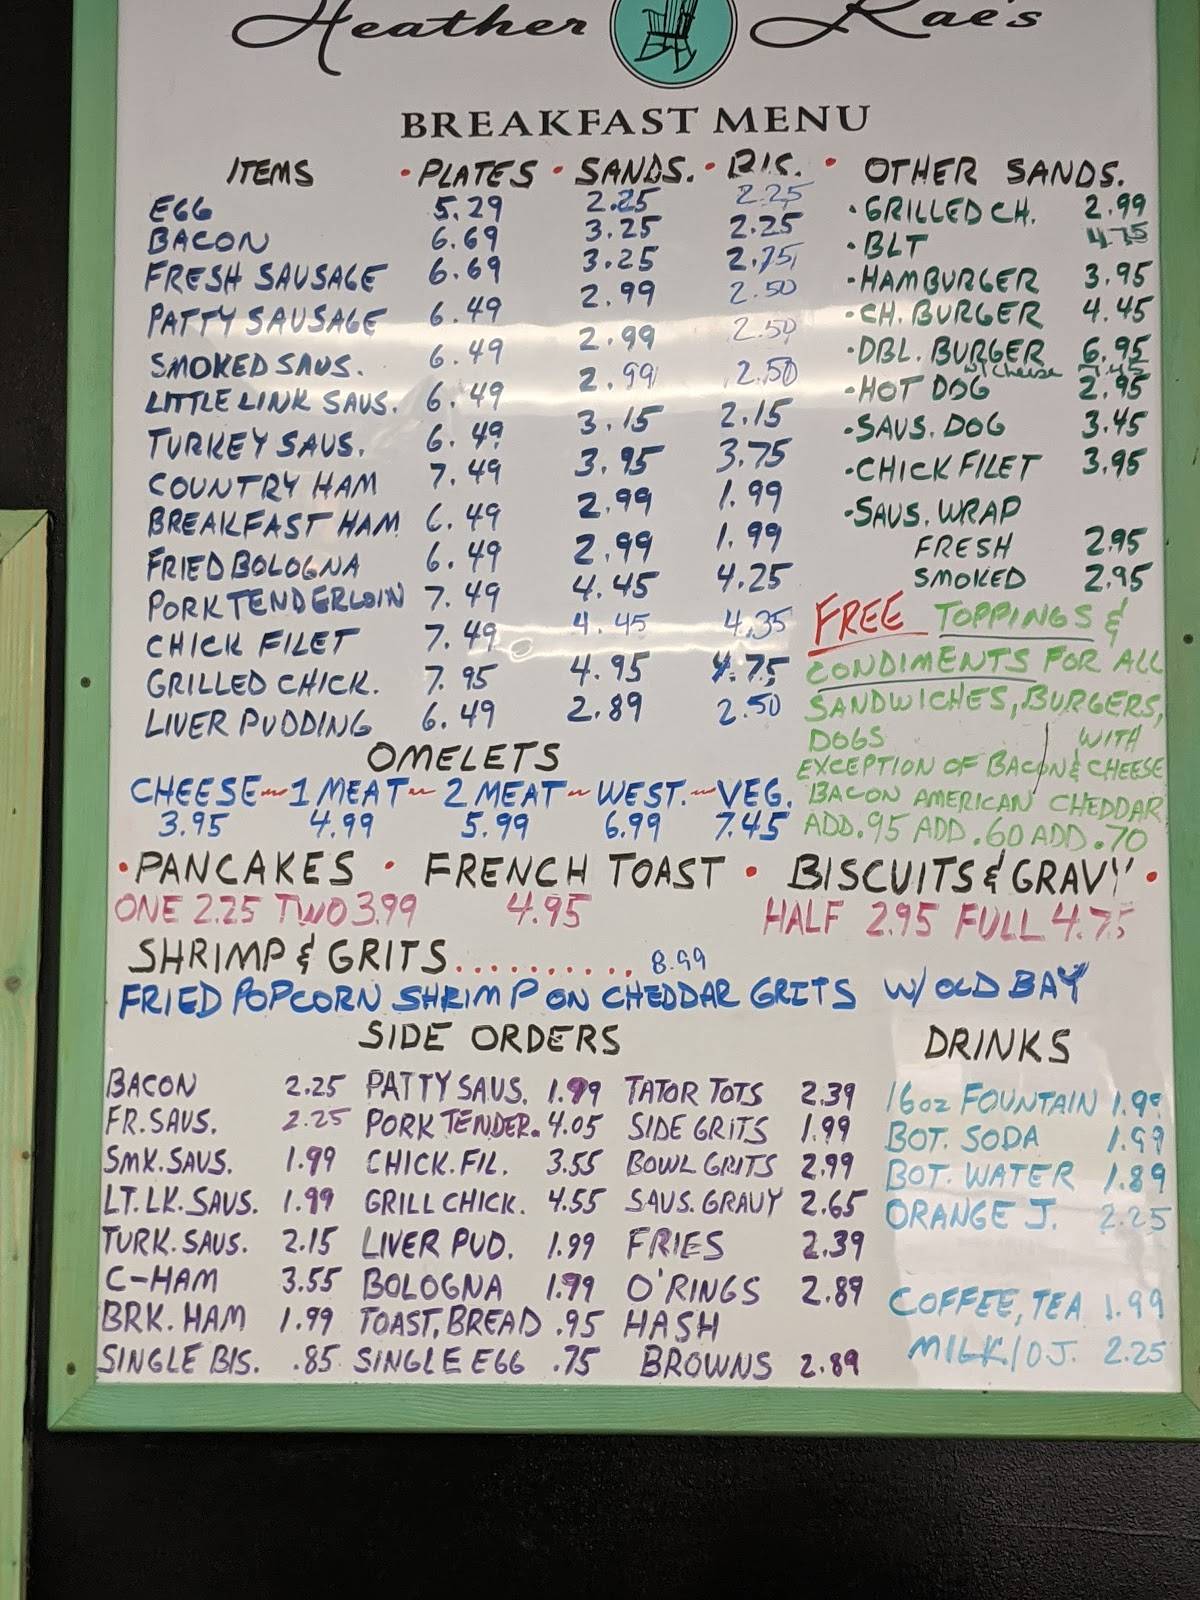 Heather Rae's
BREAKFAST MENU
ITEMS • PLATES • SANDS. • BIS. •
EGG 5.29 2.25 2.25
BACON 6.69 3.25 2.25
FRESH SAUSAGE 6.69 3.25 2.75
PATTY SAUSAGE 6.49 2.99 2.50
SMOKED SAUS. 6.49 2.99 2.50
LITTLE LINK SAUS. 6.49 2.99 2.50
TURKEY SAUS. 6.49 3.15 2.15
COUNTRY HAM 7.49 3.95 3.75
BREAKFAST HAM 6.49 2.99 1.99
FRIED BOLOGNA 6.49 2.99 1.99
PORK TENDERLOIN 7.49 4.45 4.25
CHICK FILET 7.49 4.45 4.35
GRILLED CHICK. 7.95 4.95 4.75
LIVER PUDDING 6.49 2.89 2.50
OTHER SANDS.
• GRILLED CH. 2.99
• BLT 4.75
• HAMBURGER 3.95
• CH. BURGER 4.45
• DBL. BURGER 6.95
w/cheese 7.45
• HOT DOG 2.95
• SAUS. DOG 3.45
• CHICK FILET 3.95
• SAUS. WRAP
FRESH 2.95
SMOKED 2.95
FREE TOPPINGS &
CONDIMENTS FOR ALL
SANDWICHES, BURGERS,
DOGS WITH
EXCEPTION OF BACON & CHEESE
BACON AMERICAN CHEDDAR
ADD .95 ADD .60 ADD .70
OMELETS
CHEESE - 1 MEAT - 2 MEAT - WEST. - VEG.
3.95 4.99 5.99 6.99 7.45
• PANCAKES • FRENCH TOAST • BISCUITS & GRAVY •
ONE 2.25 TWO 3.99 4.95 HALF 2.95 FULL 4.75
SHRIMP & GRITS.......... 8.99
FRIED POPCORN SHRIMP ON CHEDDAR GRITS W/ OLD BAY
SIDE ORDERS
BACON 2.25 PATTY SAUS. 1.99 TATOR TOTS 2.39
FR. SAUS. 2.25 PORK TENDER. 4.05 SIDE GRITS 1.99
SMK. SAUS. 1.99 CHICK. FIL. 3.55 BOWL GRITS 2.99
LT. LK. SAUS. 1.99 GRILL CHICK. 4.55 SAUS. GRAVY 2.65
TURK. SAUS. 2.15 LIVER PUD. 1.99 FRIES 2.39
C-HAM 3.55 BOLOGNA 1.99 O'RINGS 2.89
BRK. HAM 1.99 TOAST, BREAD .95 HASH
SINGLE BIS. .85 SINGLE EGG .75 BROWNS 2.89
DRINKS
16oz FOUNTAIN 1.99
BOT. SODA 1.99
BOT. WATER 1.89
ORANGE J. 2.25
COFFEE, TEA 1.99
MILK/OJ. 2.25